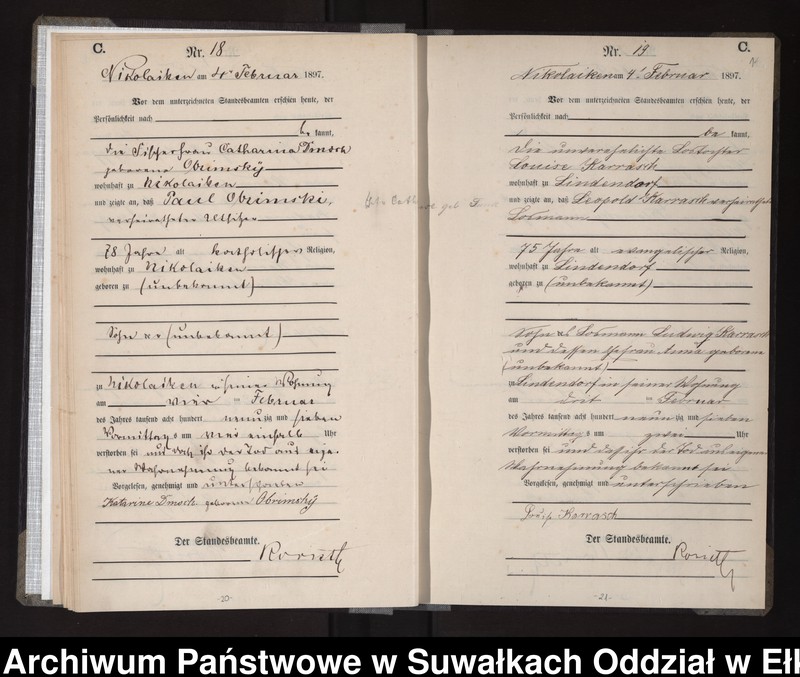 C.
Nr. 18
Nikolaiken am 4ten Februar 1897.
Vor dem unterzeichneten Standesbeamten erschien heute, der
Persönlichkeit nach
be kannt,
die Fischerfrau Catharina Dmoch
geborene Obrimsky
wohnhaft zu Nikolaiken
und zeigte an, daß Paul Obrimski,
verheiratheter Altsitzer
78 Jahre alt katholischer Religion,
wohnhaft zu Nikolaiken
geboren zu (unbekannt)
Sohn der (unbekannt)
zu Nikolaiken in seiner Wohnung
am vier ten Februar
des Jahres tausend acht hundert neun zig und sieben
Vormittags um vier einhalb Uhr
verstorben sei und daß ihr der Tod aus eige-
ner Wahrnehmung bekannt sei
Vorgelesen, genehmigt und unterschrieben
Katarine Dmoch geborene Obrimsky
Der Standesbeamte.
-20-
Nr. 19
C.
Nikolaiken am 4ten Februar 1897.
Vor dem unterzeichneten Standesbeamten erschien heute, der
Persönlichkeit nach
be kannt,
die unverehelichte Lostochter
Louise Karrasch
wohnhaft zu Lindendorf
und zeigte an, daß Leopold Karrasch verheiratheter
Losmann
75 Jahre alt evangelischer Religion,
wohnhaft zu Lindendorf
geboren zu (unbekannt)
Sohn des Losmann Ludwig Karrasch
und dessen Ehefrau geboren
(unbekannt)
zu Lindendorf in seiner Wohnung
am drit ten Februar
des Jahres tausend acht hundert neun zig und sieben
Vormittags um Uhr
verstorben sei und daß ihr der Tod aus eigener
Wahrnehmung bekannt sei
Vorgelesen, genehmigt und unterschrieben
Louise Karrasch
Der Standesbeamte.
-21-
Archiwum Państwowe w Suwałkach Oddział w Ełk